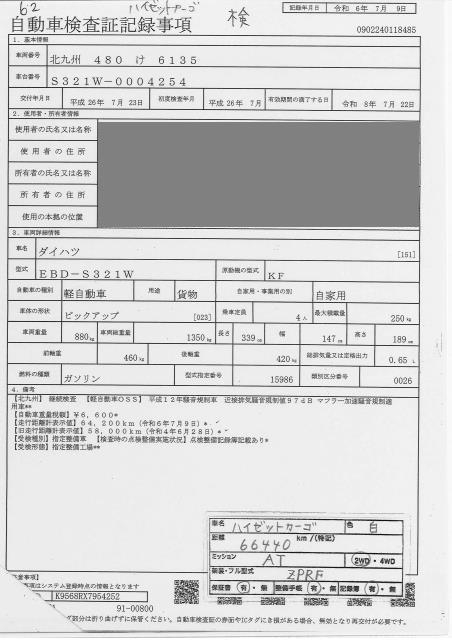 62
ハイゼットカーゴ
検
自動車検査証記録事項
記録年月日 令和 6年 7月 9日
0902240118485
1．基本情報
車両番号 北九州 480 け 6135
車台番号 S321W-0004254
交付年月日 平成 26年 7月 23日 初度検査年月 平成 26年 7月 有効期間の満了する日 令和 8年 7月 22日
2．使用者・所有者情報
使用者の氏名又は名称
使用者の住所
所有者の氏名又は名称
所有者の住所
使用の本拠の位置
3．車両詳細情報
車名 ダイハツ [151]
型式 EBD-S321W 原動機の型式 KF
自動車の種別 軽自動車 用途 貨物 自家用・事業用の別 自家用
車体の形状 ピックアップ [023] 乗車定員 4人 最大積載量 250kg
車両重量 880kg 車両総重量 1350kg 長さ 339cm 幅 147cm 高さ 189cm
前軸重 460kg 後軸重 420kg 総排気量又は定格出力 0.65 L
燃料の種類 ガソリン 型式指定番号 15986 類別区分番号 0026
4．備考
【北九州】 継続検査 【軽自動車OSS】 平成12年騒音規制車 近接排気騒音規制値97dB マフラー加速騒音規制適
用車**
【自動車重量税額】¥6,600*
【走行距離計表示値】64,200km（令和6年7月9日）*
【旧走行距離計表示値】58,000km（令和4年6月28日）*
【受検種別】指定整備車 【検査時の点検整備実施状況】点検整備記録簿記載あり*
【受検形態】指定整備工場**
車名 ハイゼットカーゴ 色 白
距離 66440 km /(特記)
ミッション AT 2WD・4WD
架装・フル型式 ZPRF
保証書 有・無 整備手帳 有・無 記録簿 有・無
意事項】
事項はシステム登録時点の情報となります
K9568RX7954252
91-00800
グ部分は折り曲げずに保管ください。自動車検査証の券面やICタグにき損がある場合、無効となり再交付が必要です。